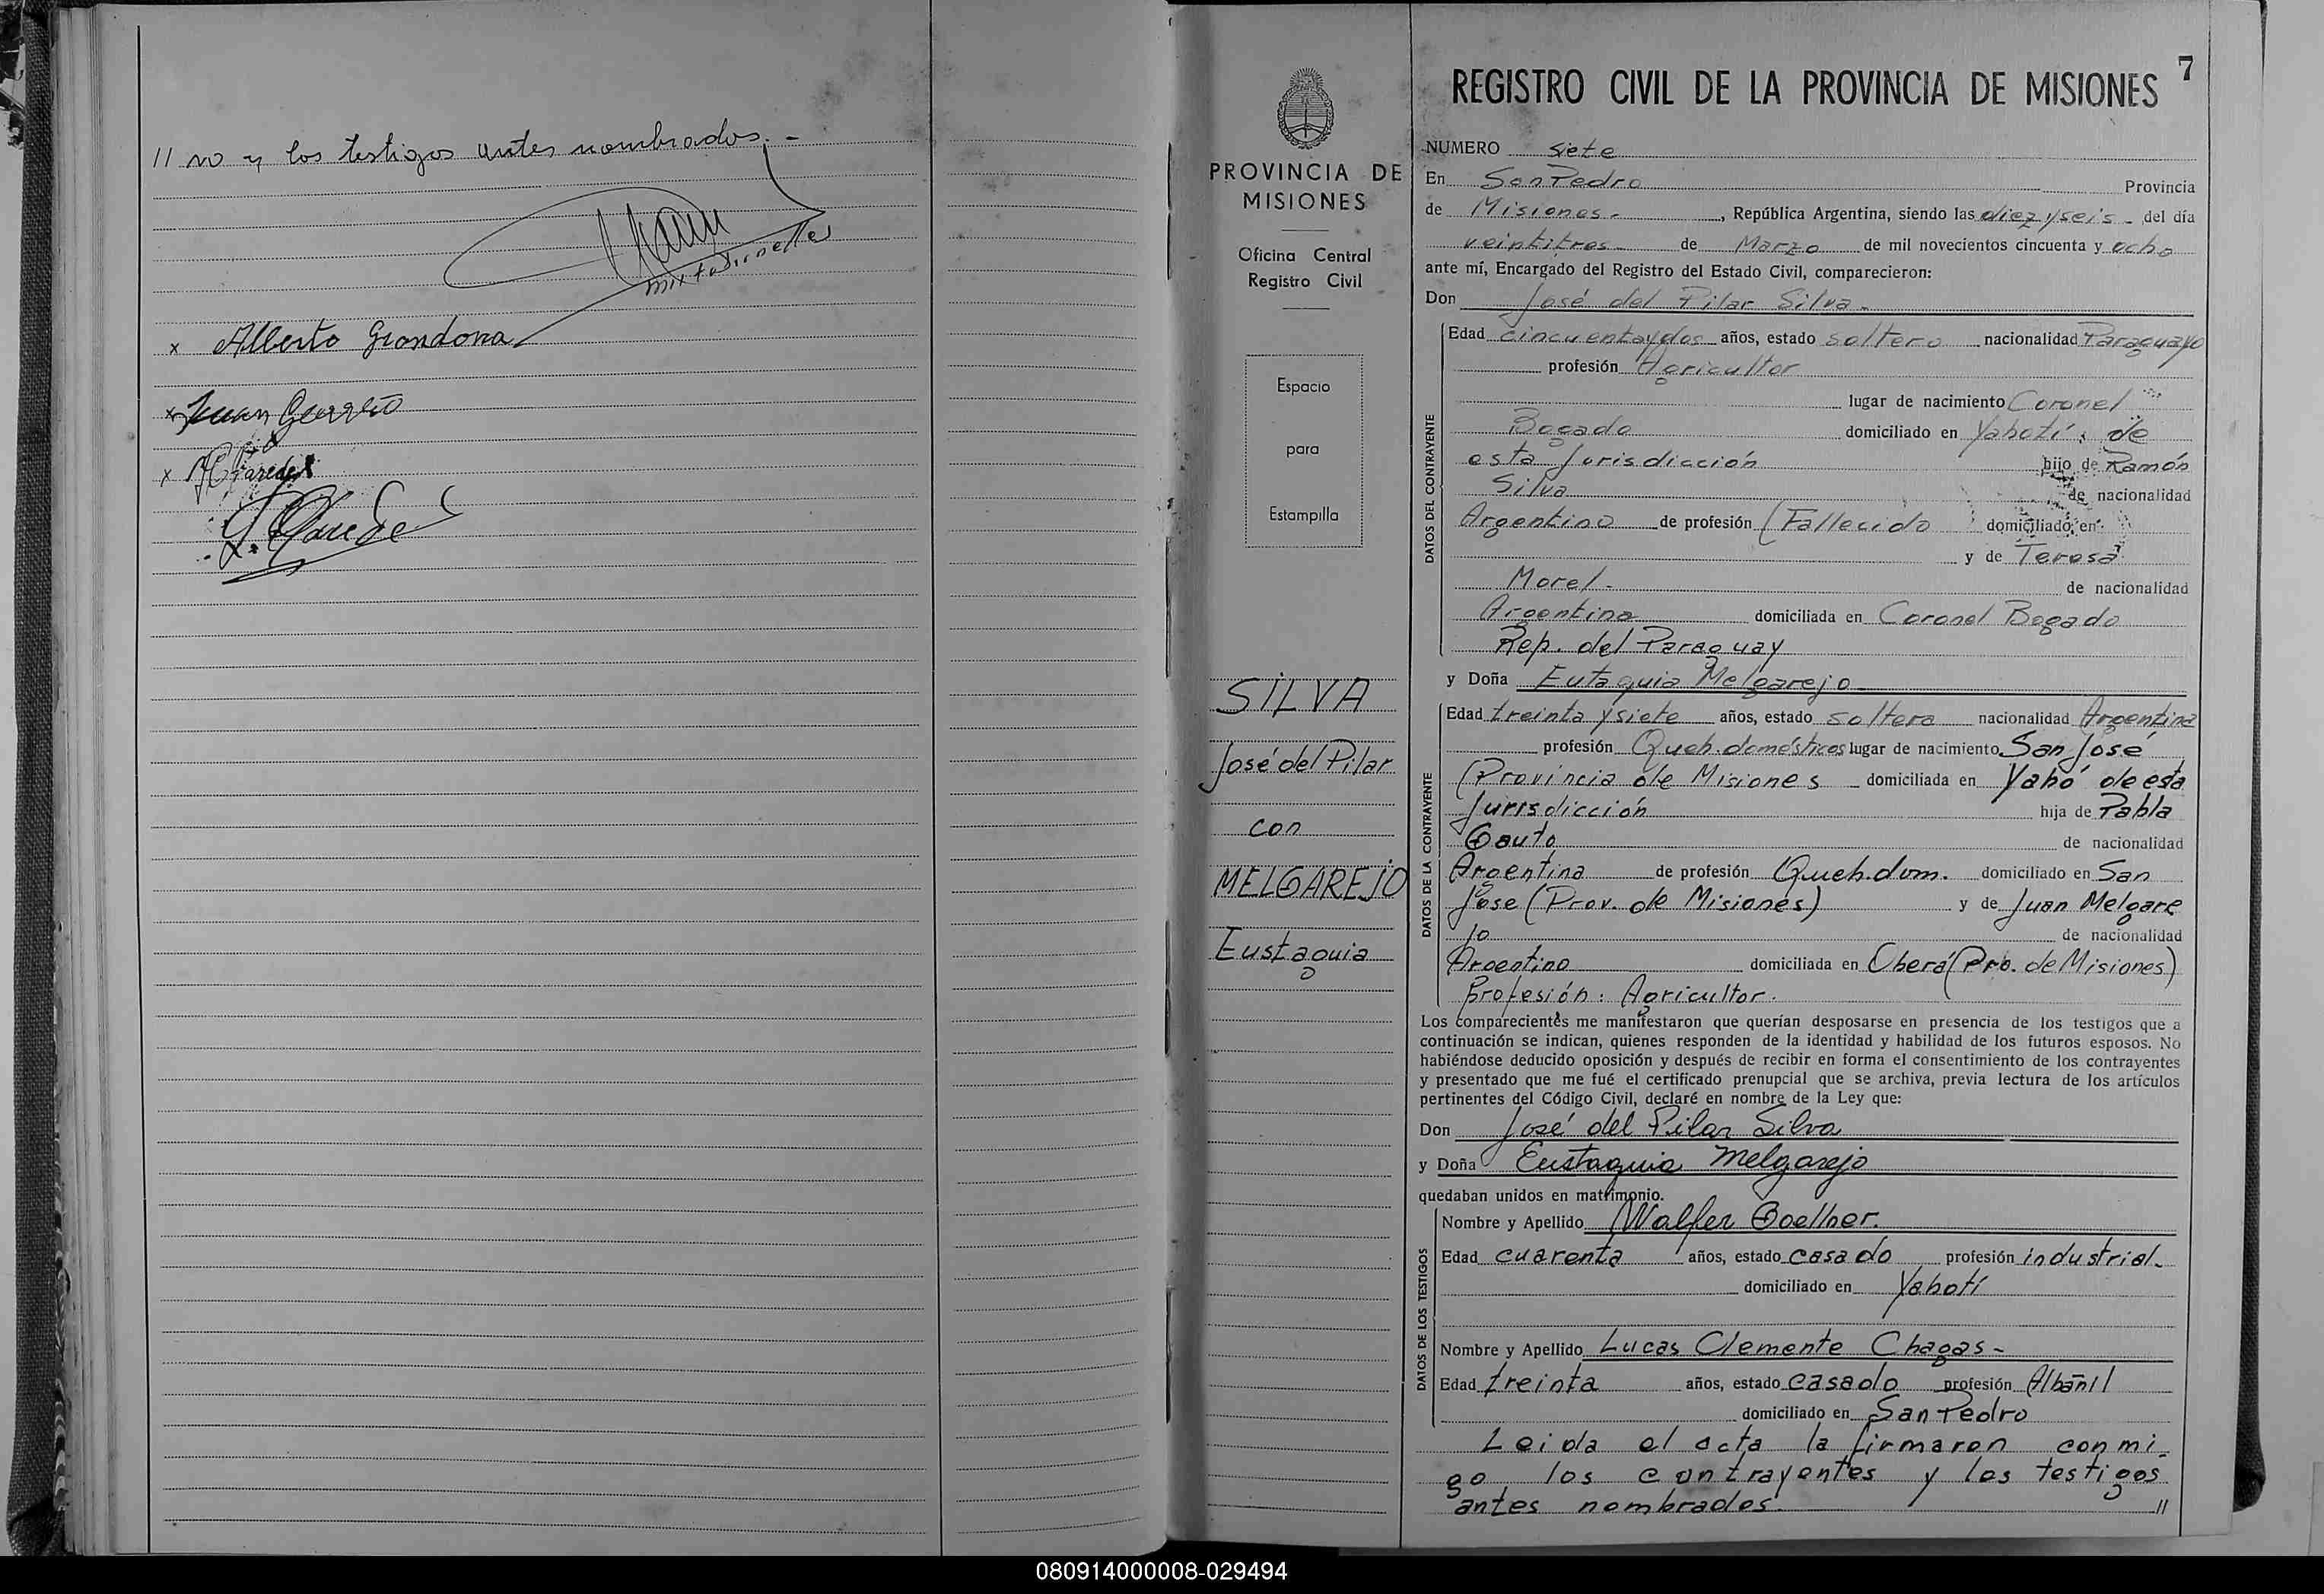 // no y los testigos antes nombrados. -
x Alberto Grondona
x Juan
x
7
REGISTRO CIVIL DE LA PROVINCIA DE MISIONES
PROVINCIA DE
MISIONES
Oficina Central
Registro Civil
Espacio
para
Estampilla
SILVA
José del Pilar
con
MELGAREJO
Eustaquia
NUMERO siete
En San Pedro Provincia
de Misiones - , República Argentina, siendo las diez y seis - del día
veintitres - de Marzo de mil novecientos cincuenta y ocho
ante mí, Encargado del Registro del Estado Civil, comparecieron:
Don José del Pilar Silva -
DATOS DEL CONTRAYENTE
Edad cincuenta y dos años, estado soltero nacionalidad Paraguayo
profesión Agricultor
lugar de nacimiento Coronel
Bogado domiciliado en Yabotí, de
esta Jurisdicción hijo de Ramón
Silva de nacionalidad
Argentino de profesión (Fallecido domiciliado en
y de Teresa
Morel - de nacionalidad
Argentina domiciliada en Coronel Bogado
Rep. del Paraguay
y Doña Eutaquia Melgarejo -
DATOS DE LA CONTRAYENTE
Edad treinta y siete años, estado soltera nacionalidad Argentina
profesión Queh. domésticos lugar de nacimiento San José
(Provincia de Misiones domiciliada en Yabó de esta
Jurisdicción hija de Pabla
Gauto de nacionalidad
Argentina de profesión Queh. dom. domiciliado en San
Jose (Prov. de Misiones) y de Juan Melgare
jo de nacionalidad
Argentino domiciliada en Oberá (Pro. de Misiones)
Profesión: Agricultor.
Los comparecientes me manifestaron que querían desposarse en presencia de los testigos que a
continuación se indican, quienes responden de la identidad y habilidad de los futuros esposos. No
habiéndose deducido oposición y después de recibir en forma el consentimiento de los contrayentes
y presentado que me fué el certificado prenupcial que se archiva, previa lectura de los artículos
pertinentes del Código Civil, declaré en nombre de la Ley que:
Don José del Pilar Silva
y Doña Eustaquia Melgarejo
quedaban unidos en matrimonio.
DATOS DE LOS TESTIGOS
Nombre y Apellido Walfer Goellner.
Edad cuarenta años, estado casado profesión industrial -
domiciliado en Yabotí
Nombre y Apellido Lucas Clemente Chagas -
Edad treinta años, estado casado profesión Albañil
domiciliado en San Pedro
Leida el acta la firmaron conmi-
go los contrayentes y los testigos
antes nombrados. //
080914000008-029494